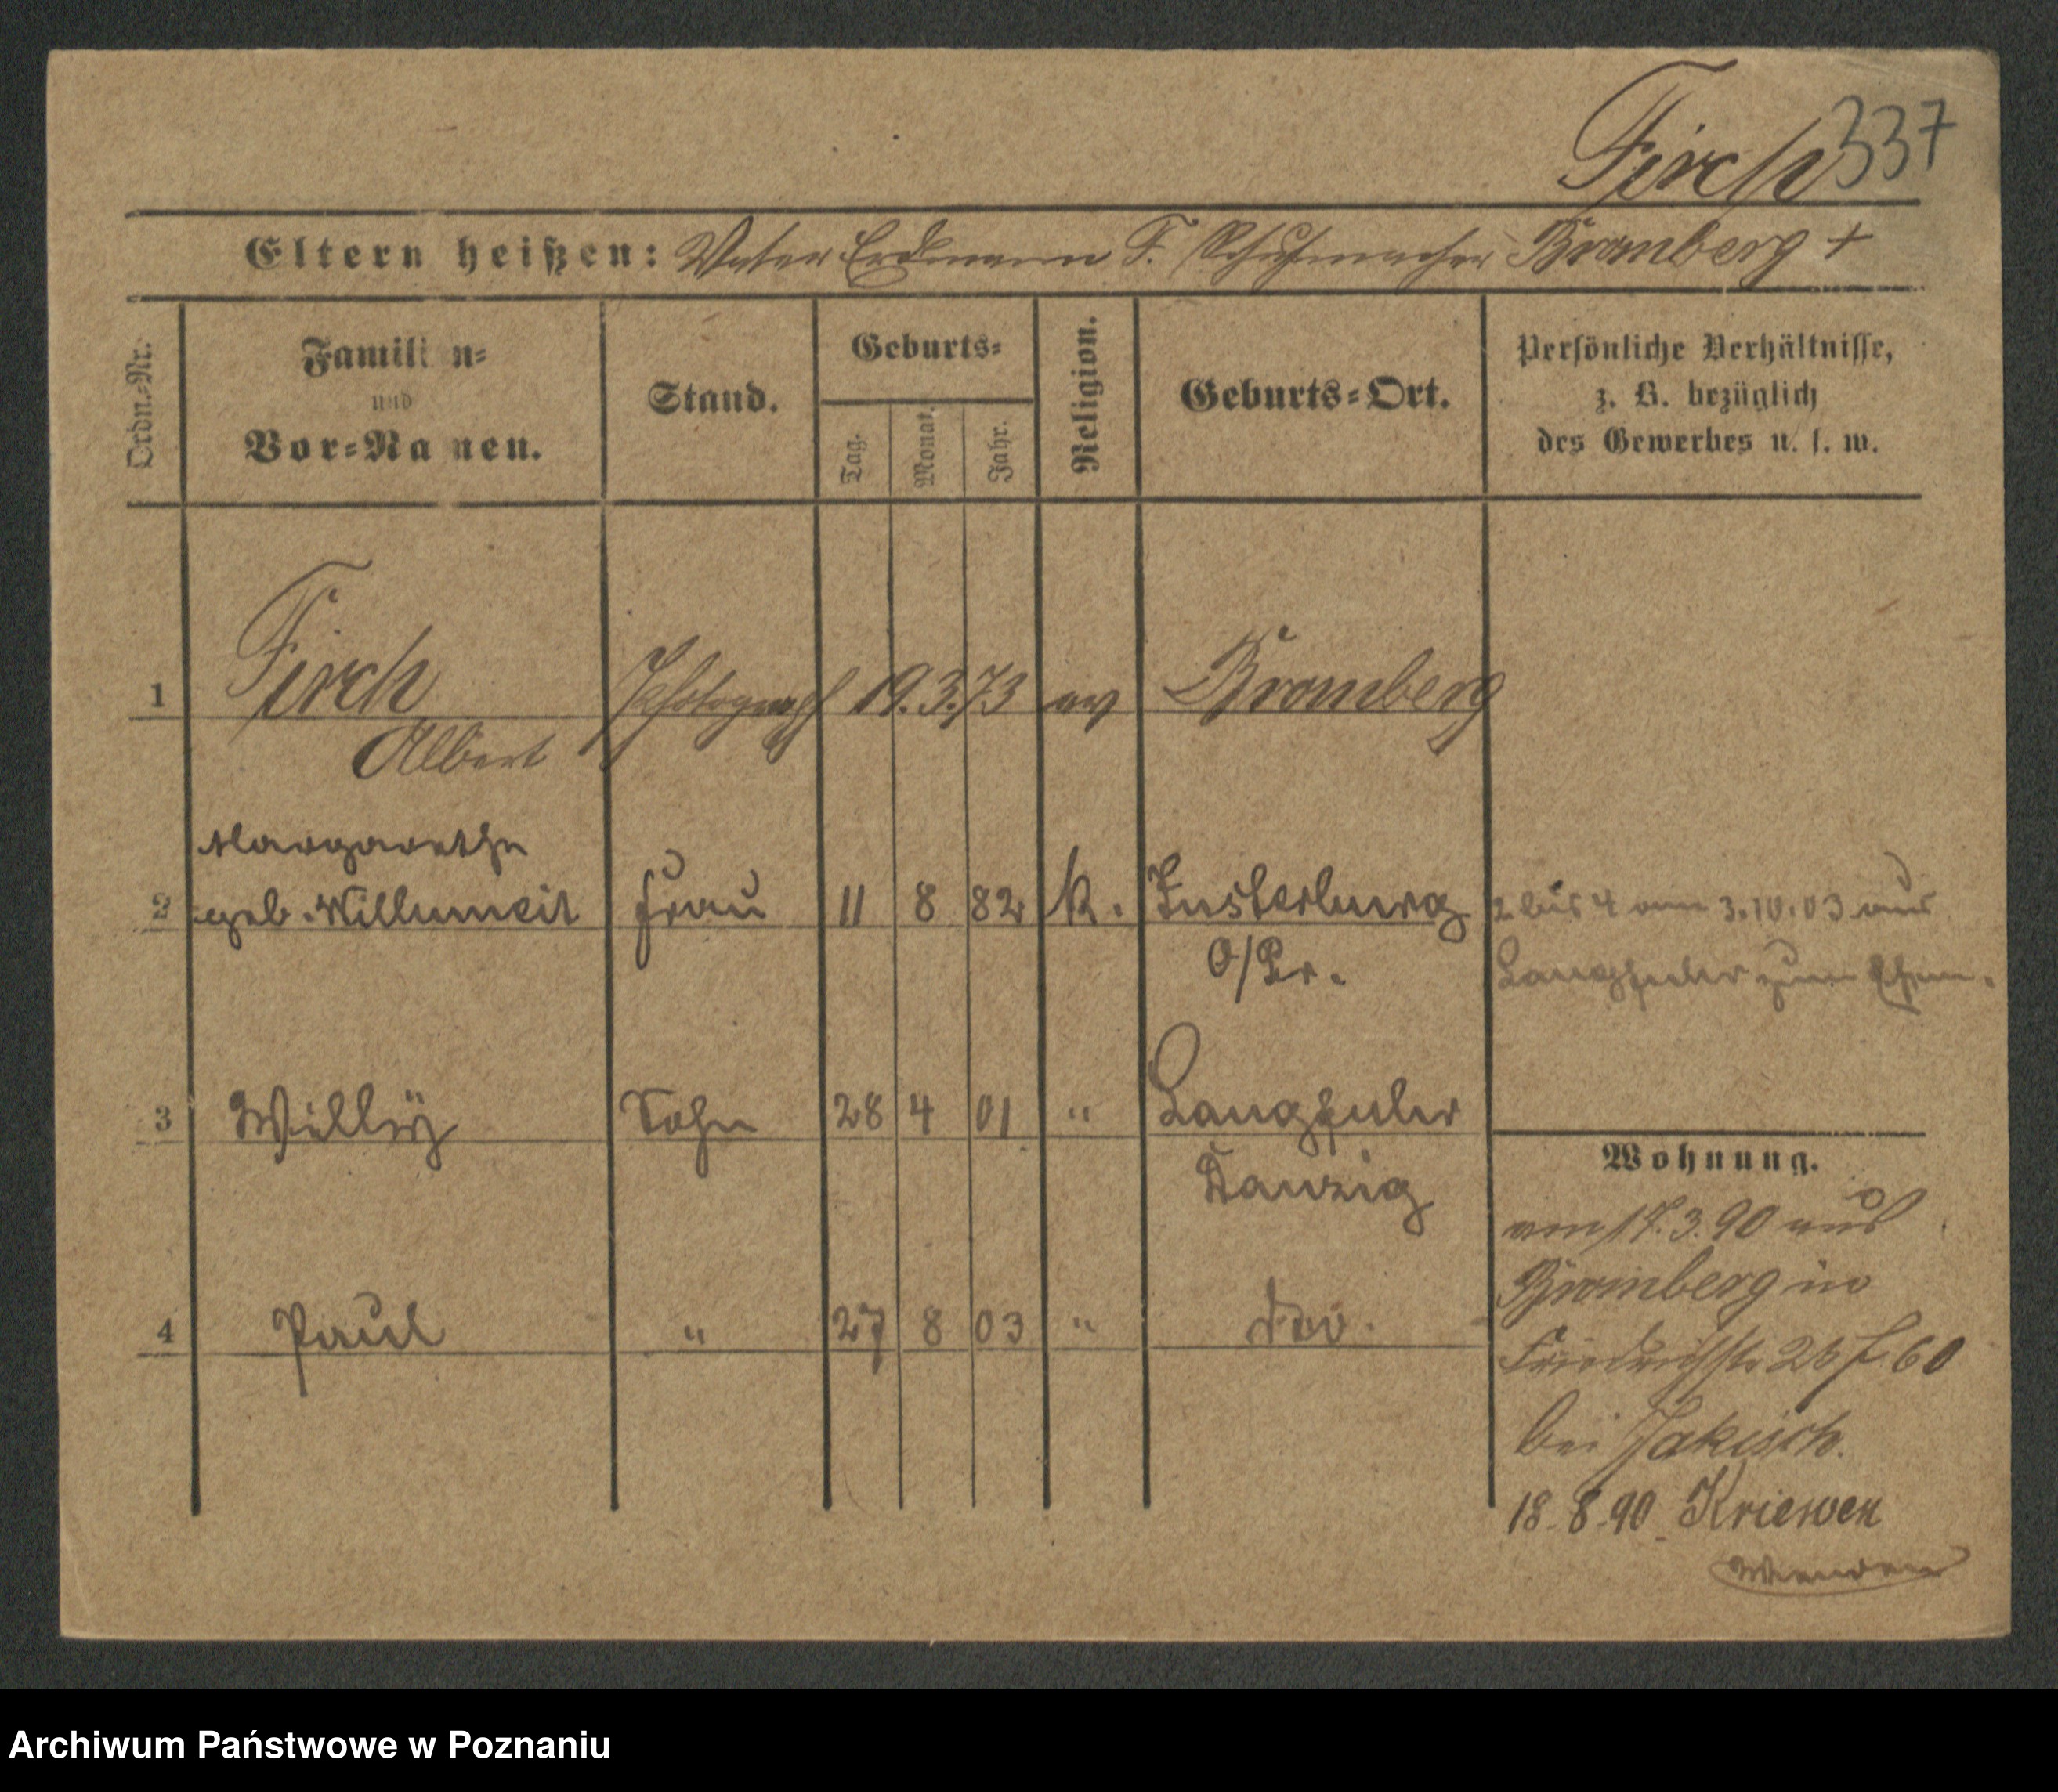 Firch 337
Eltern heißen: Vater Erdmann F. Schuhmacher Bromberg +
Ordn.-Nr.
Famili n-
und
Vor-Na nen.
Stand.
Geburts-
Tag.
Monat.
Jahr.
Religion.
Geburts-Ort.
Persönliche Verhältnisse,
z. B. bezüglich
des Gewerbes u. s. w.
1 Firch Photograph 19. 3. 73 ev Bromberg
Albert
Margarethe
2 geb. Willumeit Frau 11 8 82 k. Insterburg
O/Pr.
2 bis 4 am 3.10.03 aus
Langfuhr zum Ehem.
3 Willÿ Sohn 28 4 01 " Langfuhr
Danzig
4 Paul " 27 8 03 " do.
Wohnung.
am 17. 3. 90 aus
Bromberg in
Friedrichstr 26 f. 60
bei Jakisch.
18. 8. 90. Kriewen
Wenden